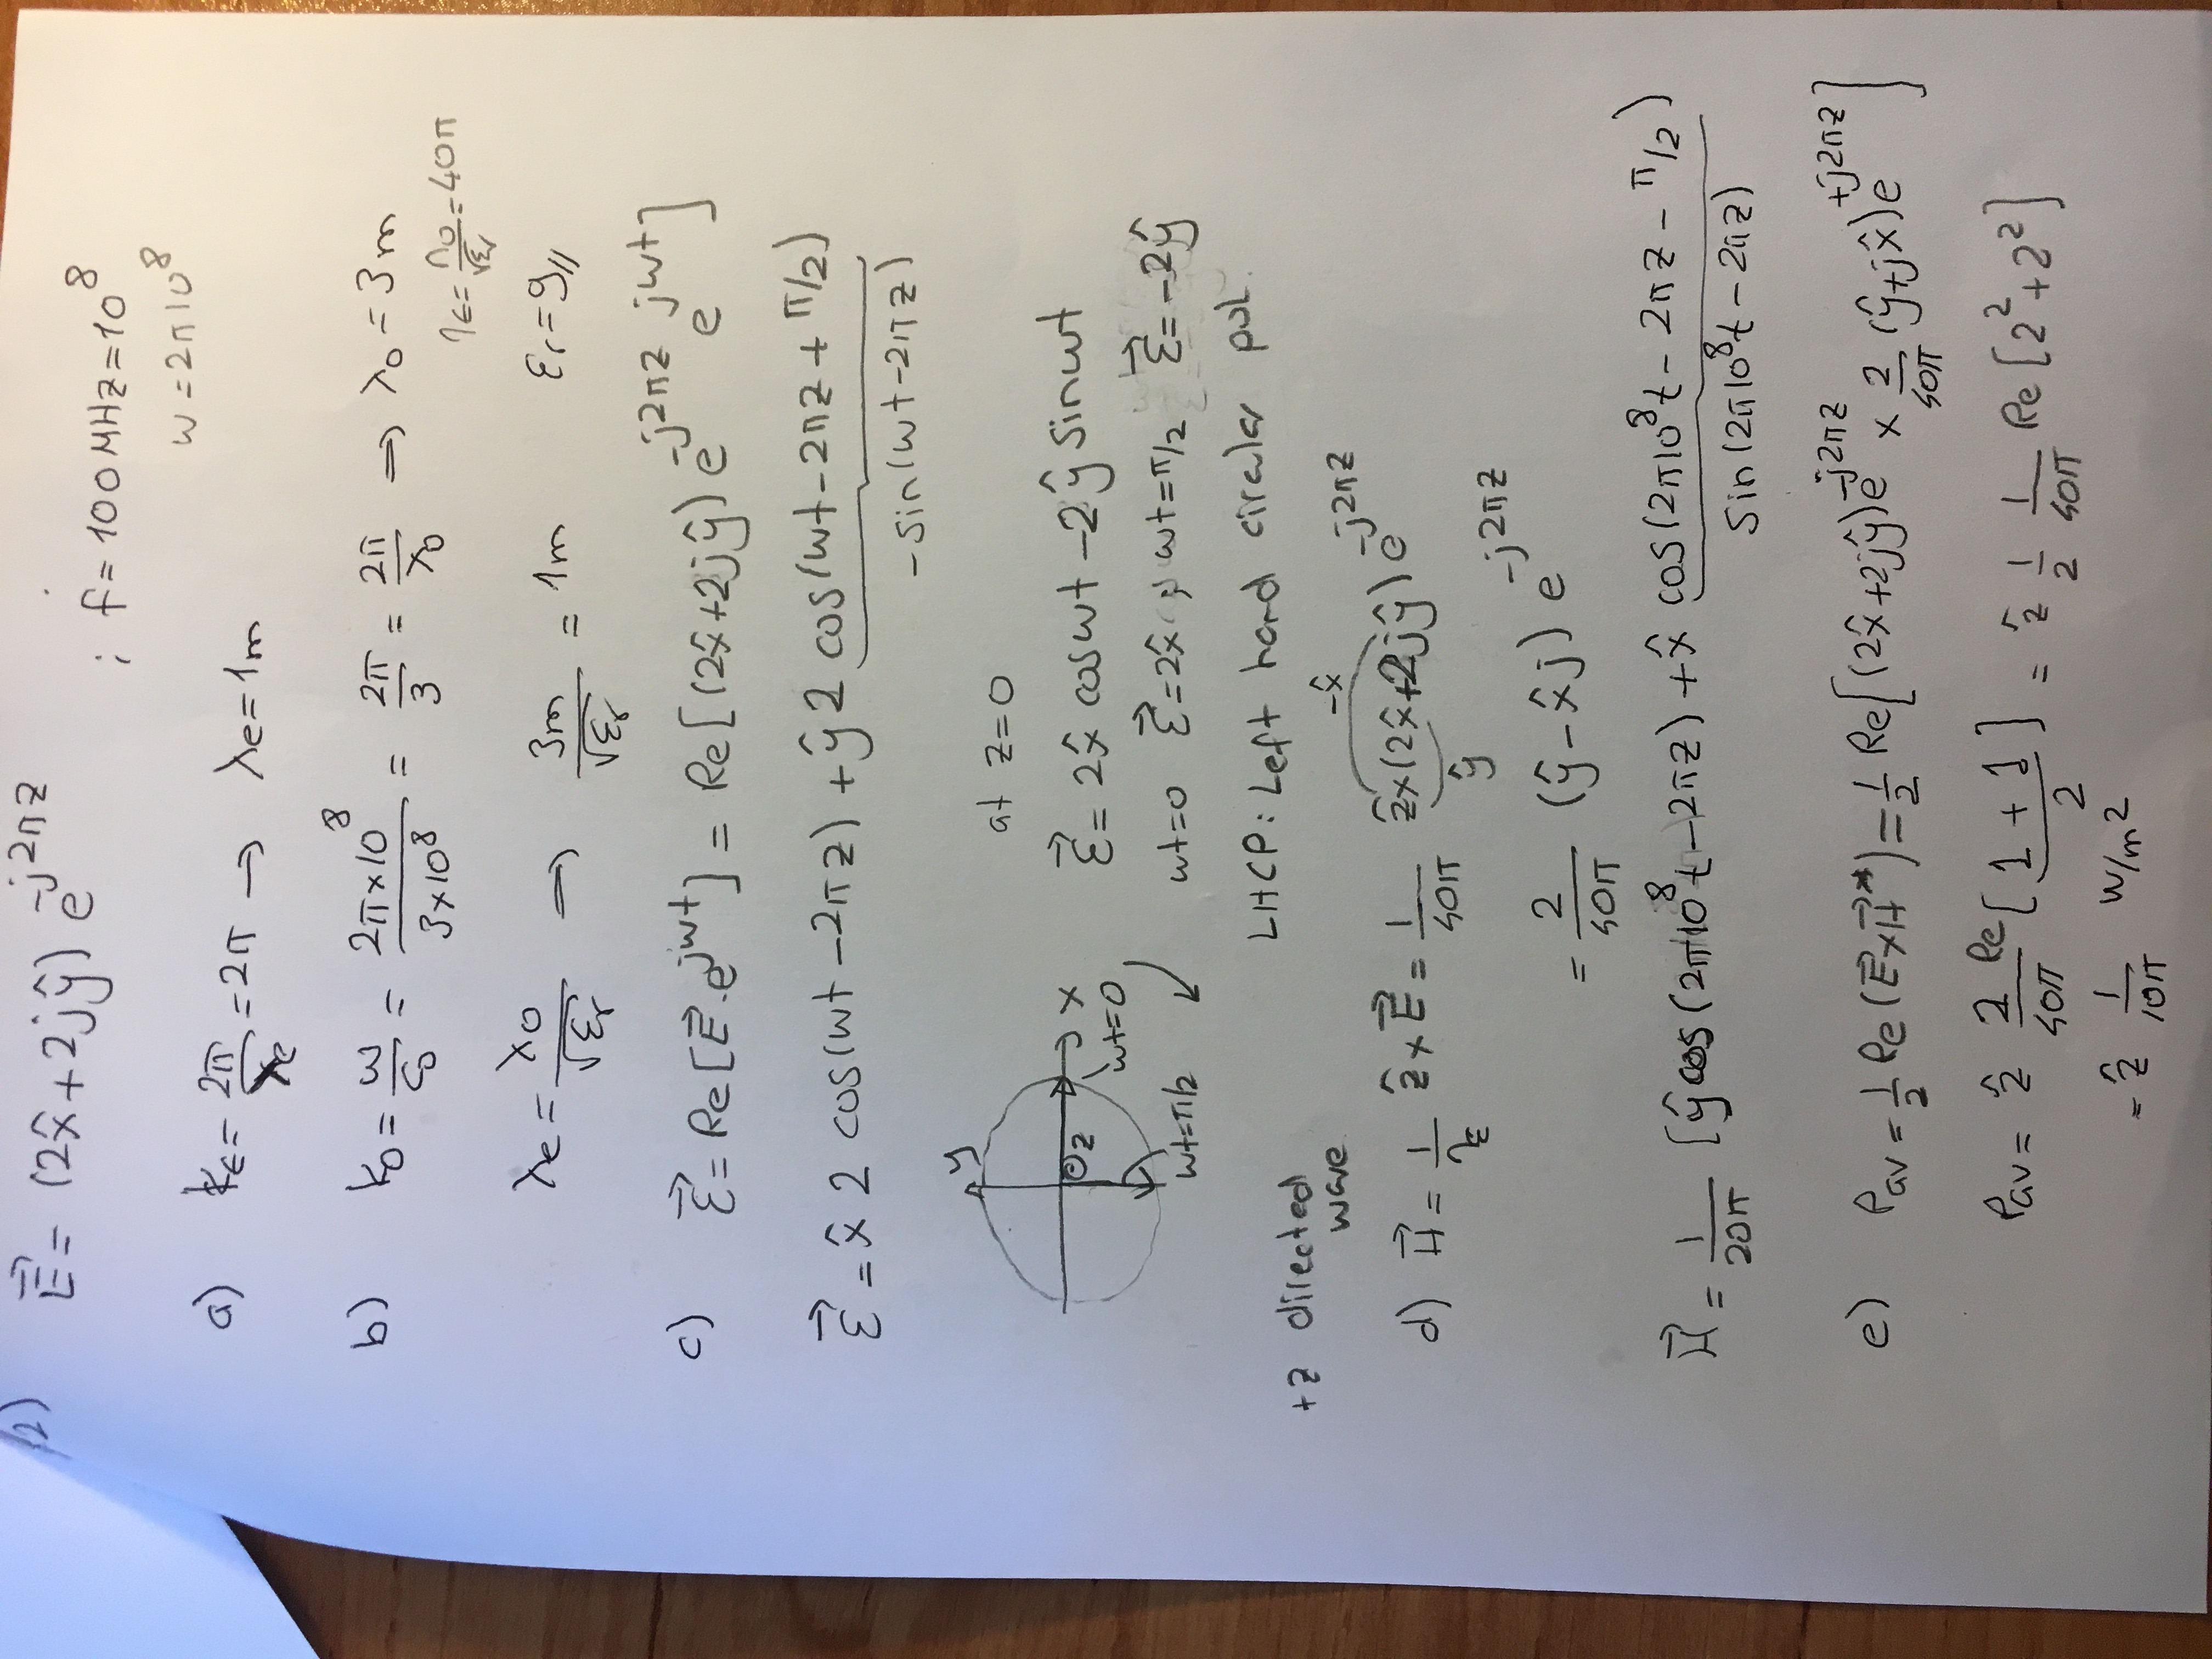 2)
E⃗ = (2x̂+2jŷ) e^{-j2πz} ; f=100MHz=10^8
w=2π10^8
a) kε = 2π/λe = 2π → λe=1m
b) k0 = w/c0 = 2π×10^8 / 3×10^8 = 2π/3 = 2π/λ0 ⇒ λ0=3m
ηε = η0/√εr = 40π
λe = λ0/√εr ⇒ 3m/√εr = 1m εr=9//
c) ℰ⃗ = Re[E⃗.e^{jwt}] = Re[(2x̂+2jŷ)e^{-j2πz} e^{jwt}]
ℰ⃗ = x̂ 2 cos(wt-2πz) + ŷ 2 cos(wt-2πz+π/2)
-sin(wt-2πz)
at z=0
y
z
x
wt=0
wt=π/2
ℰ⃗ = 2x̂ coswt -2ŷ sinwt
wt=0 ℰ⃗=2x̂ wt=π/2 ℰ⃗=-2ŷ
LHCP: Left hand circular pol.
+z directed wave
d) H⃗ = 1/ηε ẑ×E⃗ = 1/40π ẑ×(2x̂+2jŷ)e^{-j2πz}
-x̂
ŷ
= 2/40π (ŷ-x̂j) e^{-j2πz}
H⃗ = 1/20π [ŷ cos(2π10^8t-2πz) + x̂ cos(2π10^8t-2πz-π/2)
sin(2π10^8t-2πz)
e) Pav = 1/2 Re(E⃗×H⃗*) = 1/2 Re[(2x̂+2jŷ)e^{-j2πz} × 2/40π (ŷ+jx̂)e^{+j2πz}]
Pav = ẑ 2/40π Re[1+1] = ẑ 1/2 1/40π Re[2²+2²]
2
= ẑ 1/10π W/m²